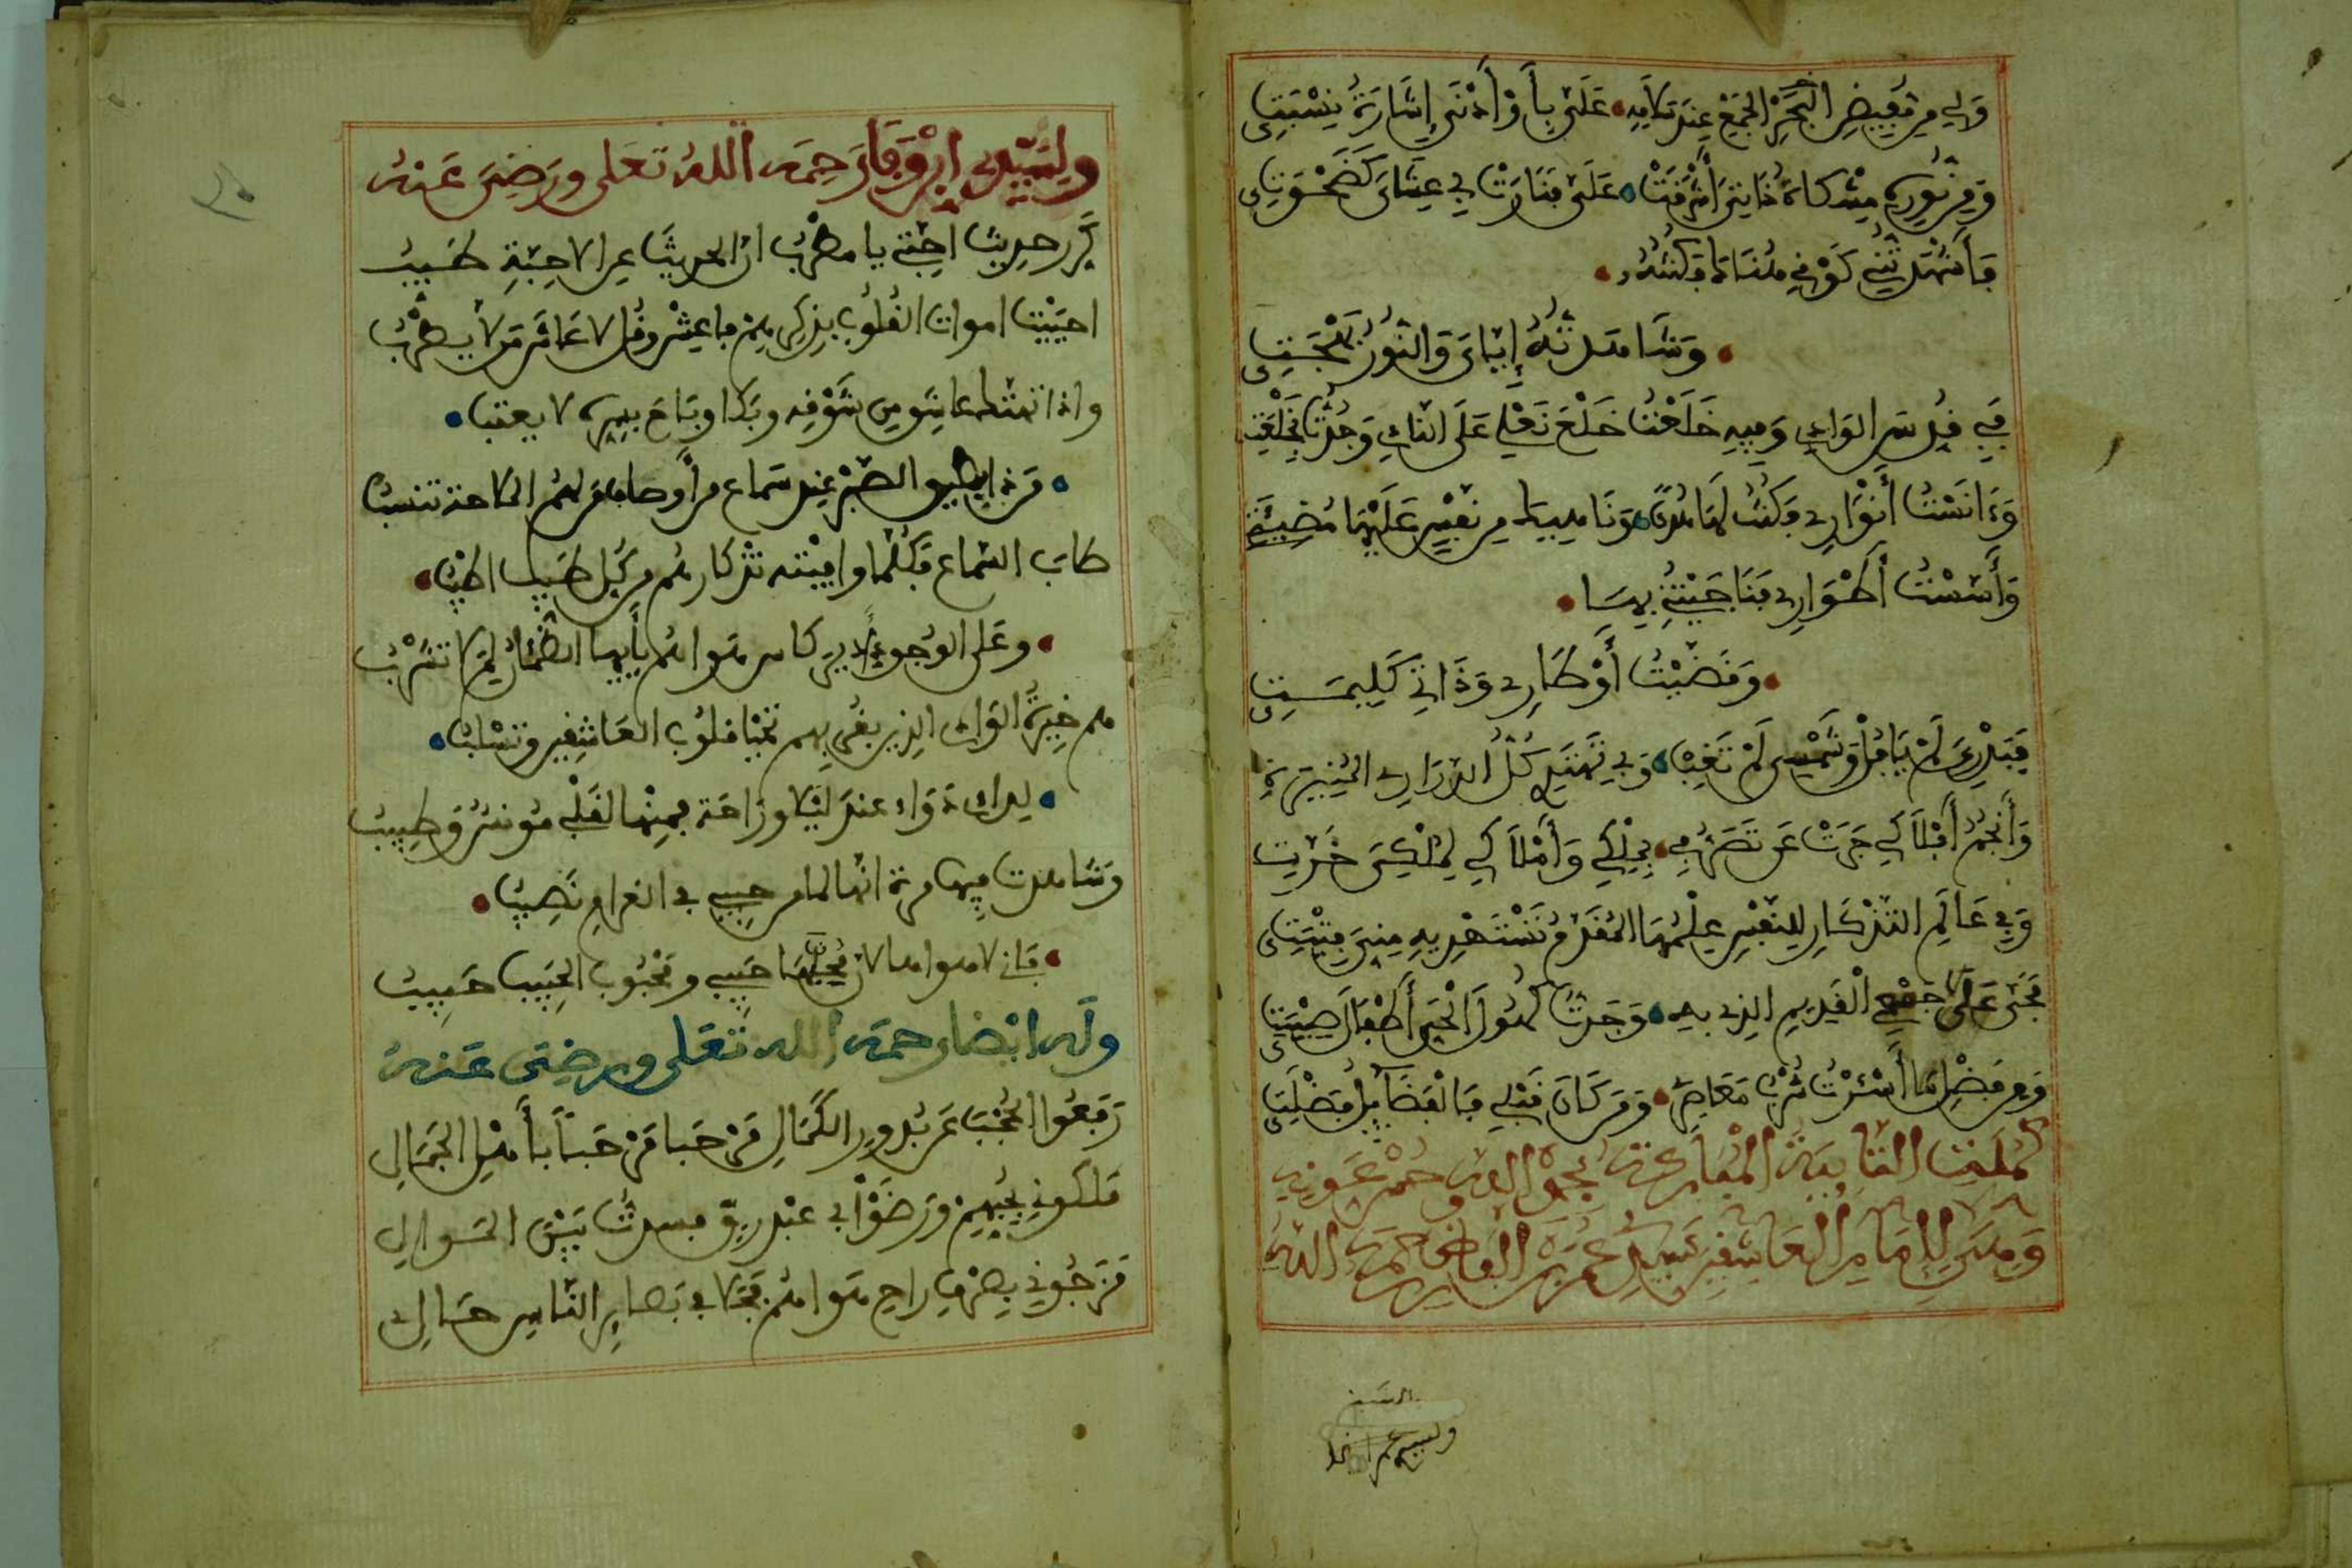 وَلِي مِن مُفِيضِ الْبَحْرِ الْجَمْعِ عِنْدَ سَلَامِهِ عَلَيَّ بِأَوْ أَدْنَى إِشَارَةُ نِسْبَتِي
وَمِن نُورِهِ مِشْكَاةُ ذَاتِيَ أَشْرَقَتْ عَلَيَّ فَنَارَتْ بِي عِشَائِي كَضَحْوَتِي
فَأَشْهَدْتُنِي كَوْنِي هُنَاكَ فَكُنْتُهُ
وَشَاهَدْتُهُ إِيَّايَ وَالنُّورُ بَهْجَتِي
فَبِي قُدِّسَ الْوَادِي وَفِيهِ خَلَعْتُ خَلْعَ نَعْلِي عَلَى النَّادِي وَجُدْتُ بِخَلْعَتِي
وَءَانَسْتُ أَنْوَارِي فَكُنْتُ لَهَا هُدًى وَنَاهِيكَ مِن نَفْسٍ عَلَيْهَا مُضِيئَةِ
وَأَسَّسْتُ أَطْوَارِي فَنَاجَيْتُنِي بِهَا
وَقَضَّيْتُ أَوْطَارِي وَذَاتِي كَلِيمَتِي
فَبَدْرِيَ لَمْ يَافُلْ وَشَمْسِي لَمْ تَغِبْ وَبِي تَهْتَدِي كُلُّ الدَّرَارِي الْمُنِيرَةِ
وَأَنْجُمُ أَفْلَاكِي جَرَتْ عَن تَصَرُّفِي بِمِلْكِي وَأَمْلَاكِي لِمُلْكِيَ خَرَّتِ
وَفِي عَالَمِ التَّذْكَارِ لِلنَّفْسِ عِلْمُهَا الْمُقَدَّمُ تَسْتَهْدِيهِ مِنِّيَ فِتْيَتِي
فَحَيَّ عَلَى جَمْعِي الْقَدِيمِ الَّذِي بِهِ وَجَدْتُ كُهُولَ الْحَيِّ أَطْفَالَ صِبْيَتِي
وَمِن فَضْلِ مَا أَسْأَرْتُ شُرْبُ مُعَاصِرِي وَمَن كَانَ قَبْلِي فَالْفَضَائِلُ فَضْلَتِي
كَمُلَتِ التَّائِيَةُ الْمُبَارَكَةُ بِحَمْدِ اللهِ وَحُسْنِ عَوْنِهِ
وَهِيَ لِإِمَامِ الْعَاشِقِينَ سَيِّدِي عُمَرَ بْنِ الْفَارِضِ رَحِمَهُ اللهُ
ولسيدي
وَلِسَيِّدِي ابْن وَفَا رَحِمَهُ اللهُ تَعَلَى وَرَضِيَ عَنْهُ
كَرِّر حديث احبتي يا مطرب ان الحديث عن الاحبة طيب
احييت اموات القلوب بذكرهم فاعِشْ وقل لا عاش من لا يطرب
واذا تهتك عاشق من شوقه وبكا وباح بسره لا يعتب
من ذا يطيق الصبر عند سماع من أوصافهم لهم الملاحة تنسب
طاب السماع فكلما وافيته تذكارهم من كل طيب اطيب
وعلى الوجود أدير كاس هواهم يأيها الظمئان لم لا تشرب
هم خيرة الوادي الذين بقربهم تحيا قلوب العاشقين وتسلب
لداك دواء عند ليلى وراحة فمنها لقلبي مونس وطبيب
وشاهدت فيها مرة انها لها من حبيبي في الغرام نصيب
فاني لاهواها لان محبها حبيبي ومحبوب الحبيب حبيب
وله ايضا رحمه الله تعلى ورضي عنه
رَفَعُوا الحُجْبَ عن بُدُورِ الكَمَالِ مَرْحَبا مَرْحَباً بأَهْلِ الجَمَالِ
مَلَكُوني بِحُبِّهِمْ ورَضَوْا بي عَبْدَ رِقٍّ فسدت بين الموالي
مَزَجُوني بِصِرْفِ راح هواهم فحلا في بصاير الناس حالي